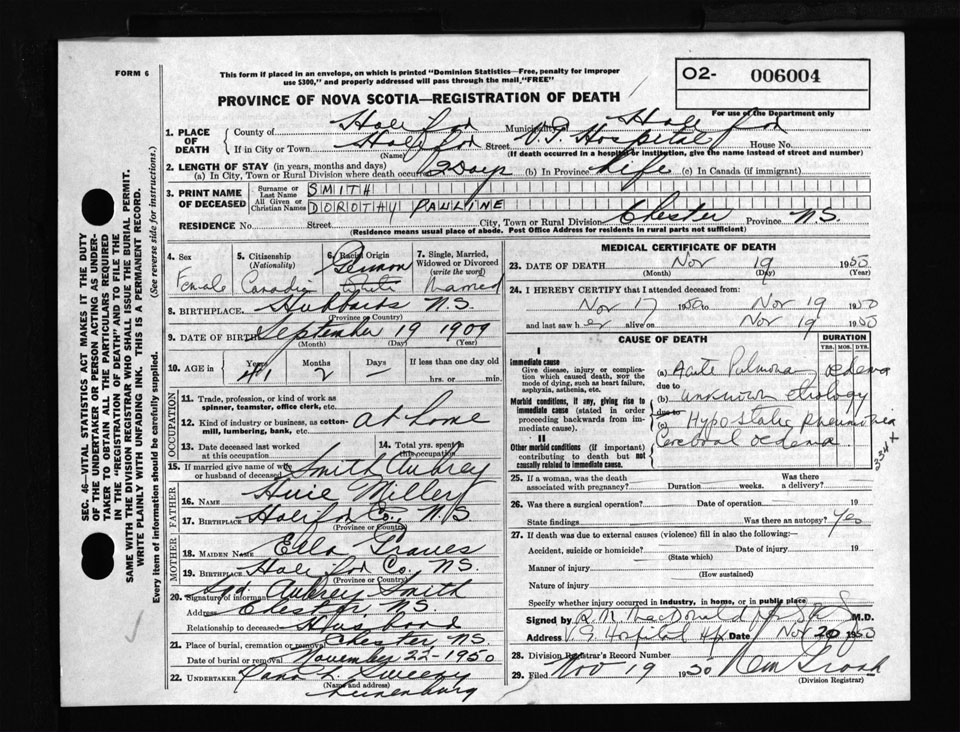 FORM 6
This form if placed in an envelope, on which is printed "Dominion Statistics—Free, penalty for improper
use $300," and properly addressed will pass through the mail "FREE"
O2- 006004
PROVINCE OF NOVA SCOTIA—REGISTRATION OF DEATH
For use of the Department only
1. PLACE OF DEATH
County of Halifax Municipality Halifax
If in City or Town Halifax Street V.G. Hospital House No.
(Name) (If death occurred in a hospital or institution, give the name instead of street and number)
2. LENGTH OF STAY (in years, months and days)
(a) In City, Town or Rural Division where death occurred 2 Days (b) In Province Life (c) In Canada (if immigrant)
3. PRINT NAME OF DECEASED
Surname or Last Name SMITH
All Given or Christian Names DOROTHY PAULINE
RESIDENCE No. Street City, Town or Rural Division Chester Province N.S.
(Residence means usual place of abode. Post Office Address for residents in rural parts not sufficient)
4. Sex Female
5. Citizenship (Nationality) Canadian
6. Racial Origin German White
7. Single, Married, Widowed or Divorced (write the word) Married
8. BIRTHPLACE Hubbards N.S.
(Province or Country)
9. DATE OF BIRTH September 19 1909
(Month) (Day) (Year)
10. AGE in Years 41 Months 2 Days — If less than one day old
hrs. or min.
OCCUPATION
11. Trade, profession, or kind of work as
spinner, teamster, office clerk, etc.
12. Kind of industry or business, as cotton-
mill, lumbering, bank, etc. at home
13. Date deceased last worked
at this occupation
14. Total yrs. spent in
this occupation
15. If married give name of wife
or husband of deceased Smith Aubrey
FATHER
16. NAME Miller
17. BIRTHPLACE Halifax Co. N.S.
(Province or Country)
MOTHER
18. MAIDEN NAME Ella Graves
19. BIRTHPLACE Halifax Co. N.S.
(Province or Country)
20. Signature of informant Sgd. Aubrey Smith
Address Chester N.S.
Relationship to deceased Husband
21. Place of burial, cremation or removal Chester N.S.
Date of burial or removal November 22 - 1950
22. UNDERTAKER Sweeny
(Name and address)
Lunenburg
MEDICAL CERTIFICATE OF DEATH
23. DATE OF DEATH Nov 19 1950
(Month) (Day) (Year)
24. I HEREBY CERTIFY that I attended deceased from:
Nov 17 1950 to Nov 19 1950
and last saw her alive on Nov 19 1950
CAUSE OF DEATH
DURATION
YRS. MOS. DYS.
I
Immediate cause
Give disease, injury or complica-
tion which caused death, not the
mode of dying, such as heart failure,
asphyxia, asthenia, etc.
(a) Acute Pulmonary oedema
due to
Morbid conditions, if any, giving rise to
immediate cause (stated in order
proceeding backwards from im-
mediate cause).
(b) unknown etiology
due to
(c) Hypostatic Pneumonia
II
Other morbid conditions (if important)
contributing to death but not
causally related to immediate cause.
Cerebral oedema
25. If a woman, was the death
associated with pregnancy? Duration weeks. Was there
a delivery?
26. Was there a surgical operation? Date of operation 19
State findings Was there an autopsy? Yes
27. If death was due to external causes (violence) fill in also the following:—
Accident, suicide or homicide? Date of injury 19
(State which)
Manner of injury
(How sustained)
Nature of injury
Specify whether injury occurred in industry, in home, or in public place
Signed by R.M. MacDonald M.D.
Address V.G. Hospital Hfx Date Nov 20 1950
28. Division Registrar's Record Number
29. Filed Nov 19 1950
(Division Registrar)
SEC. 46—VITAL STATISTICS ACT MAKES IT THE DUTY
OF THE UNDERTAKER OR PERSON ACTING AS UNDER-
TAKER TO OBTAIN ALL THE PARTICULARS REQUIRED
IN THE "REGISTRATION OF DEATH" AND TO FILE THE
SAME WITH THE DIVISION REGISTRAR WHO SHALL ISSUE THE BURIAL PERMIT.
WRITE PLAINLY WITH UNFADING INK. THIS IS A PERMANENT RECORD.
Every item of information should be carefully supplied. (See reverse side for instructions.)